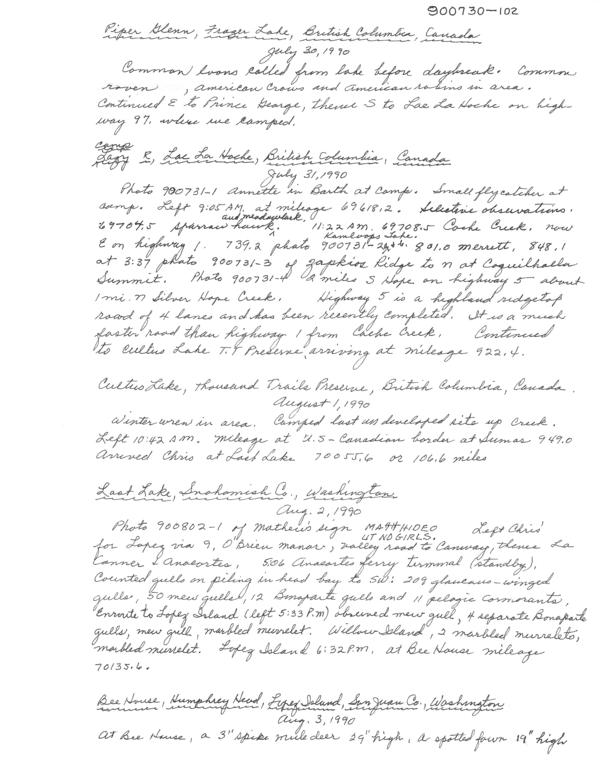 900730-102
Piper Glenn, Frazer Lake, British Columbia, Canada
July 30, 1990
Common loons called from lake before daybreak. Common
raven , American Crows and American robins in area.
Continued E to Prince George, thence S to Lac La Hache on high-
way 97. where we camped.
Camp
Lazy R, Lac La Hache, British Columbia, Canada
July 31, 1990
Photo 900731-1 Annette in Barth at camp. Small flycatcher at
camp. Left 9:05 A.M. at mileage 69618.2. Selective observations.
69704.5 sparrow hawk, and meadowlark, 11:22 AM. 69708.5 Cache Creek. now
E on highway 1. 739.2 photo 900731-2 Kamloops Lake. 801.0 merrett, 848.1
at 3:37 photo 900731-3 of Zapkios Ridge to N at Coquilhalla
Summit. Photo 900731-4 2 miles S Hope on highway 5 about
1 mi. N Silver Hope Creek. Highway 5 is a highland ridgetop
road of 4 lanes and has been recently completed. It is a much
faster road than highway 1 from Cache Creek. Continued
to Cultus Lake T.T Preserve, arriving at mileage 922.4.
Cultus Lake, Thousand Trails Preserve, British Columbia, Canada.
August 1, 1990
Winter wren in area. Camped last undeveloped site up Creek.
Left 10:42 AM. mileage at U.S-Canadian border at Sumas 949.0
Arrived Chris at Lost Lake 70055.6 or 106.6 miles
Lost Lake, Snohomish Co., Washington
Aug. 2, 1990
Photo 900802-1 of Mathew's sign MATTHIDEO UT NO GIRLS. Left Chris'
for Lopez via 9, O'Brien manor, valley road to Conway, thence La
Conner & Anacortes, 506 Anacortes ferry terminal (standby),
Counted gulls on piling in head bay to SW: 209 glaucous-winged
gulls, 50 mew gulls, 12 Bonaparte gulls and 11 pelagic cormorants,
Enroute to Lopez Island (left 5:33 P.M) observed mew gull, 4 separate Bonaparte
gulls, mew gull, marbled murrelet. Willow Island, 2 marbled murrelets,
marbled murrelet. Lopez Island 6:32 P.M. at Bee House mileage
70135.6.
Bee House, Humphrey Head, Lopez Island, San Juan Co., Washington
Aug. 3, 1990
At Bee House, a 3" spike mule deer 29" high, a spotted fawn 19" high